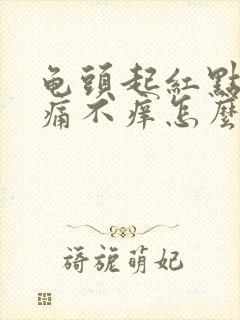 龟頭起紅點
痛不痒怎麼
旖旎萌妃